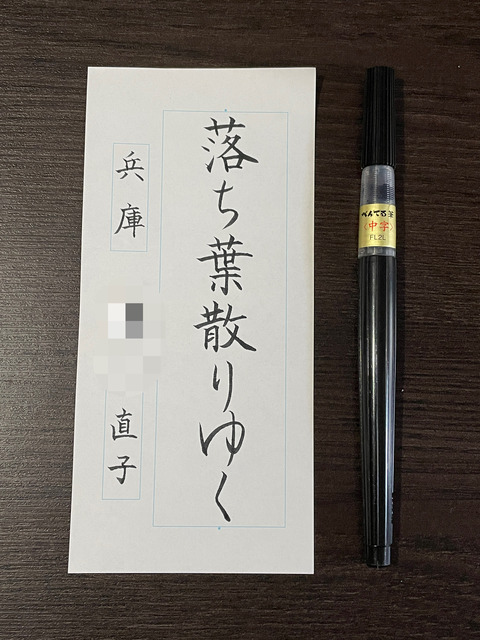 落ち葉散りゆく
兵庫
直子
ぺんてる筆
〈中字〉
FL2L